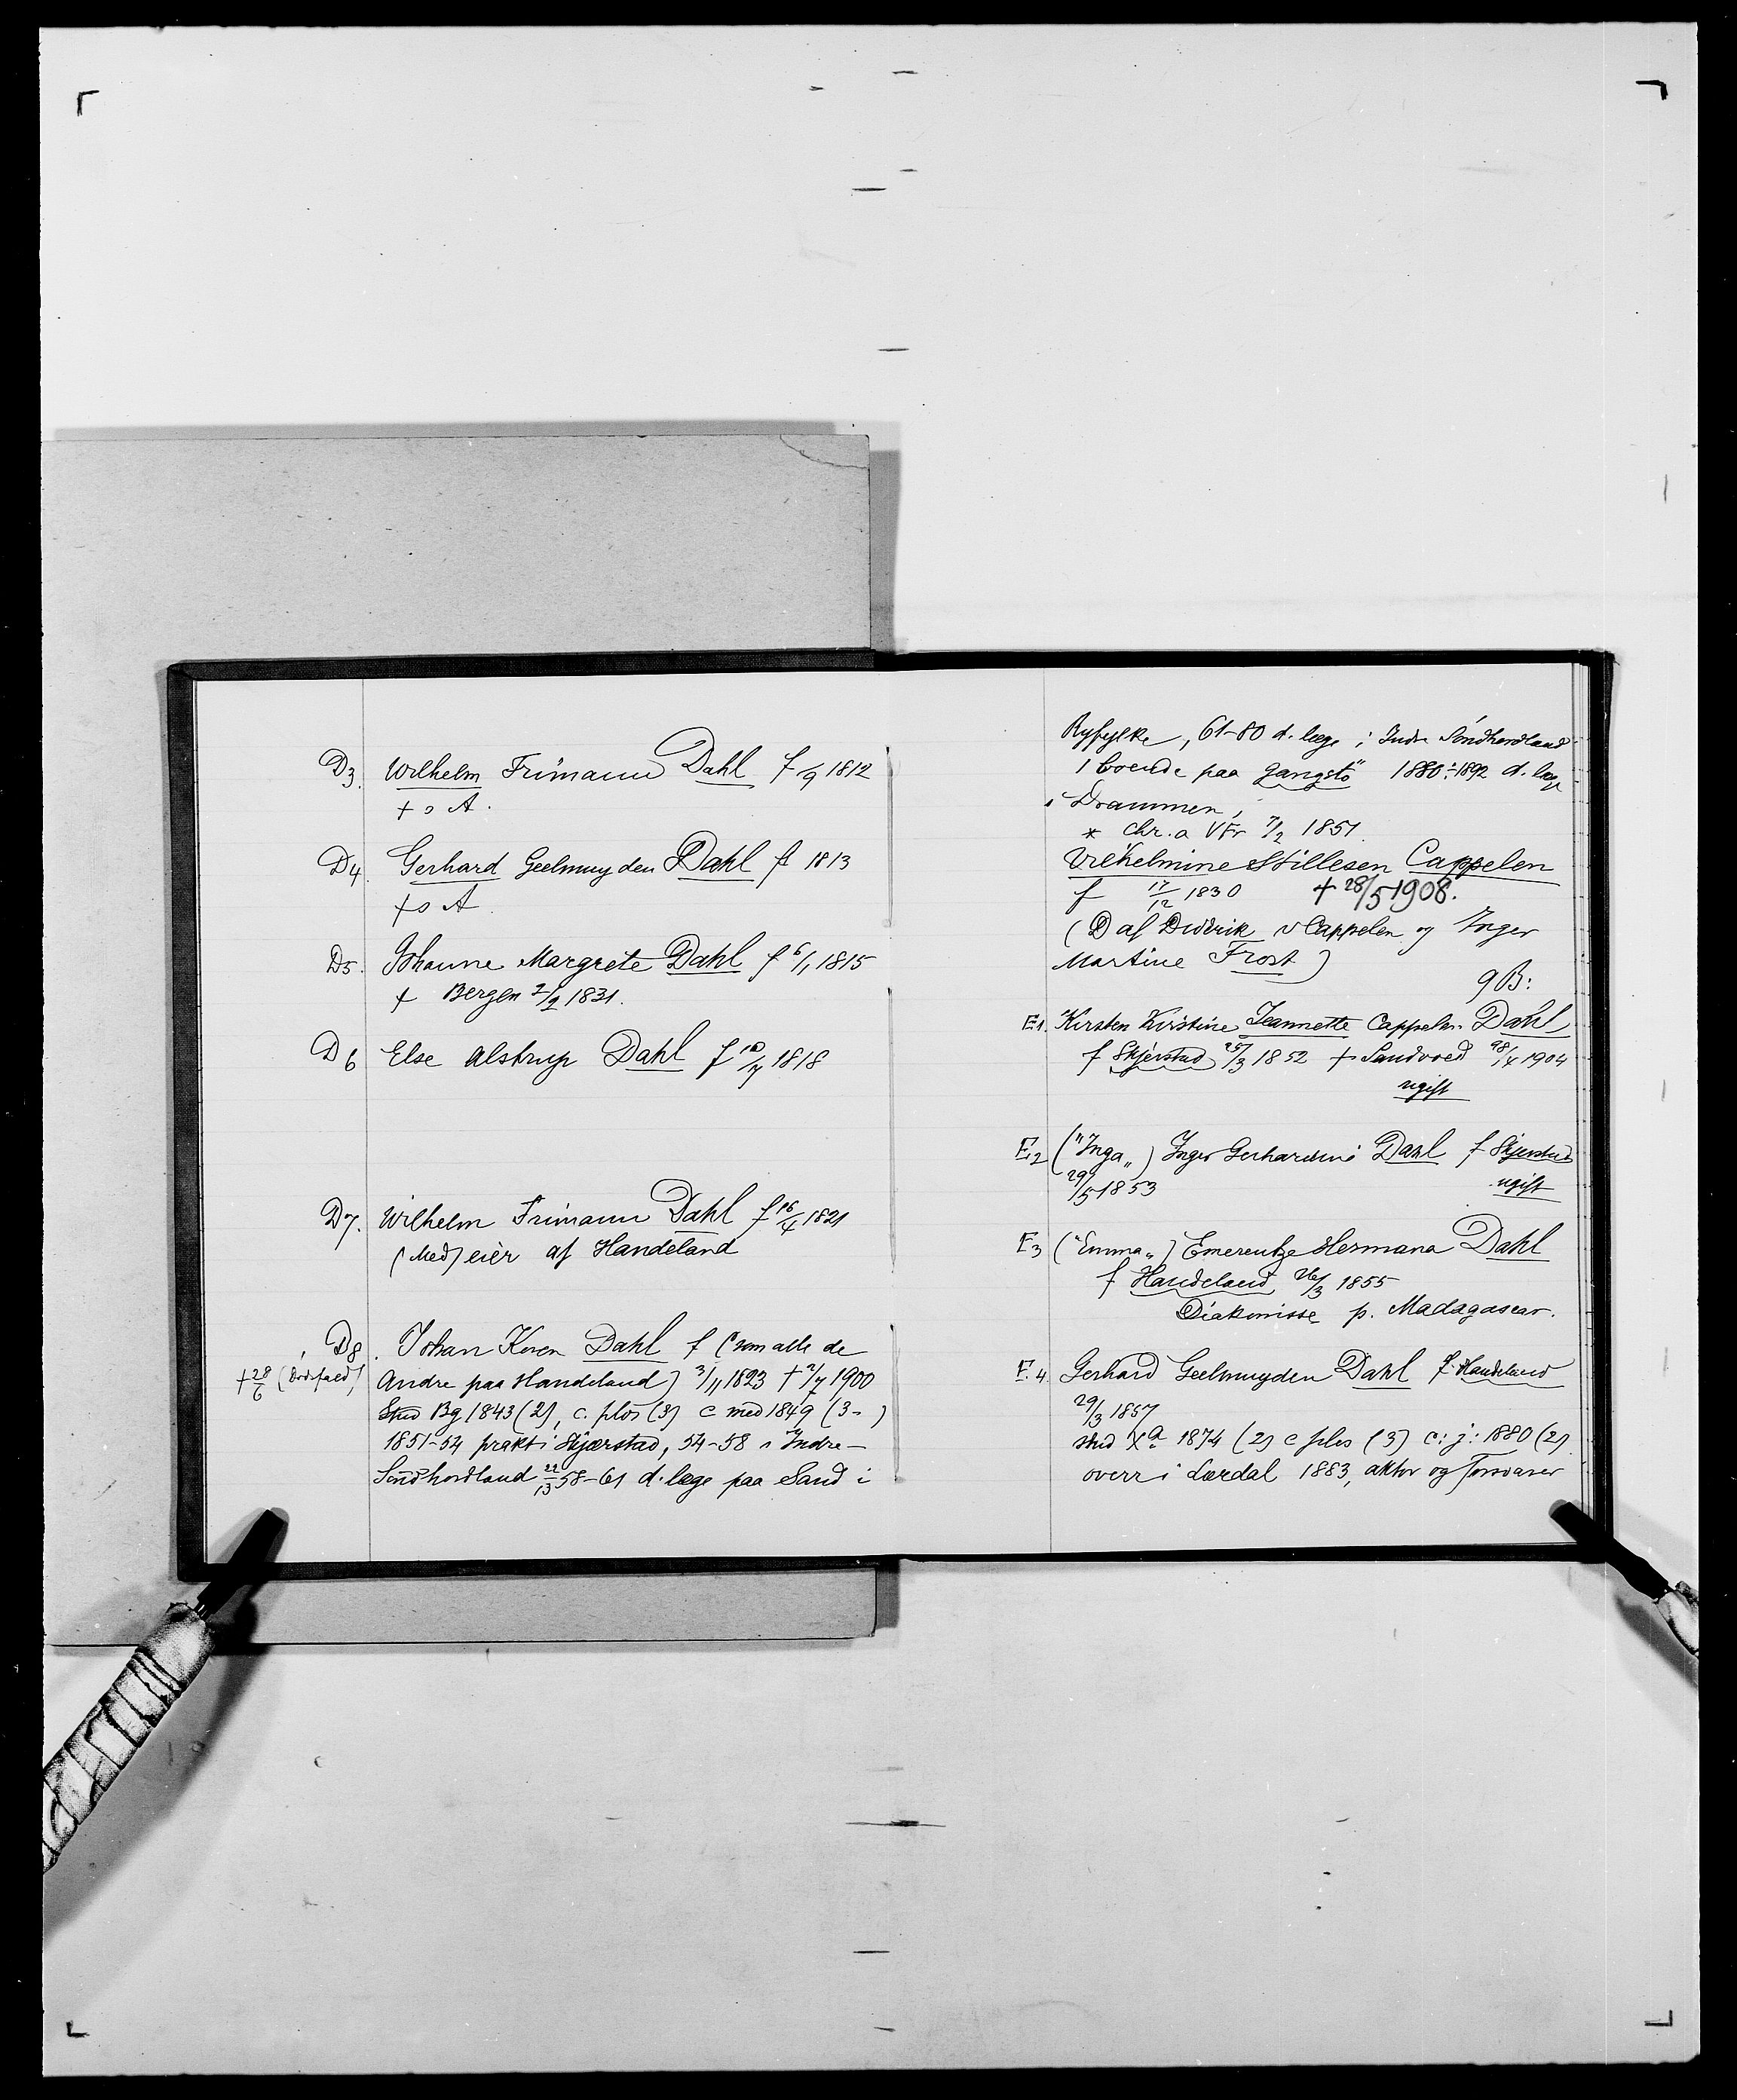 D3. Wilhelm Frimann Dahl f /9 1812
+ s A.
D4. Gerhard Geelmuyden Dahl f 1813
+ s A.
D5. Johanne Margrete Dahl f 6/1 1815
+ Bergen 2/2 1831.
D6 Else Alstrup Dahl f 10/7 1818
D7. Wilhelm Frimann Dahl f 16/4 1821
(Med) eier af Handeland
D8. Johan Koren Dahl f (som alle de
+ 28/6 (Dødsfald)
Andre paa Handeland) 3/11 1823 + 2/7 1900
Stud Bg 1843 (2), c. filos (3) c med 1849 (3-)
1851-54 prakt i Skjærstad, 54-58 i Indre-
Søndhordland 22/13 58-61 d. læge paa Sand i
Ryfylke, 61-80 d. læge i Indre Søndhordland
boende paa Gangstø 1880÷1892 d. læge
i Drammen,
* Chr. a VFr 7/2 1851.
Vilhelmine Stillesen Cappelen
f 17/12 1830 + 28/5 1908.
(D af Didrik v Cappelen og Inger
Martine Frost)
9 B:
E1. Kirsten Kirstine Jeannette Cappelen Dahl
f Skjerstad 25/3 1852 + Sandved 28/4 1904
ugift
E2 ("Inga") Inger Gerhardine Dahl f Skjerstad
29/5 1853 ugift
E3 ("Emma") Emerentze Hermana Dahl
f Handeland 26/3 1855
Diakonisse p. Madagascar.
E.4. Gerhard Geelmuyden Dahl f. Handeland
29/3 1857
stud Xa 1874 (2) c filos (3) c: j: 1880 (2)
overr i Lærdal 1883, aktor og forsvarer